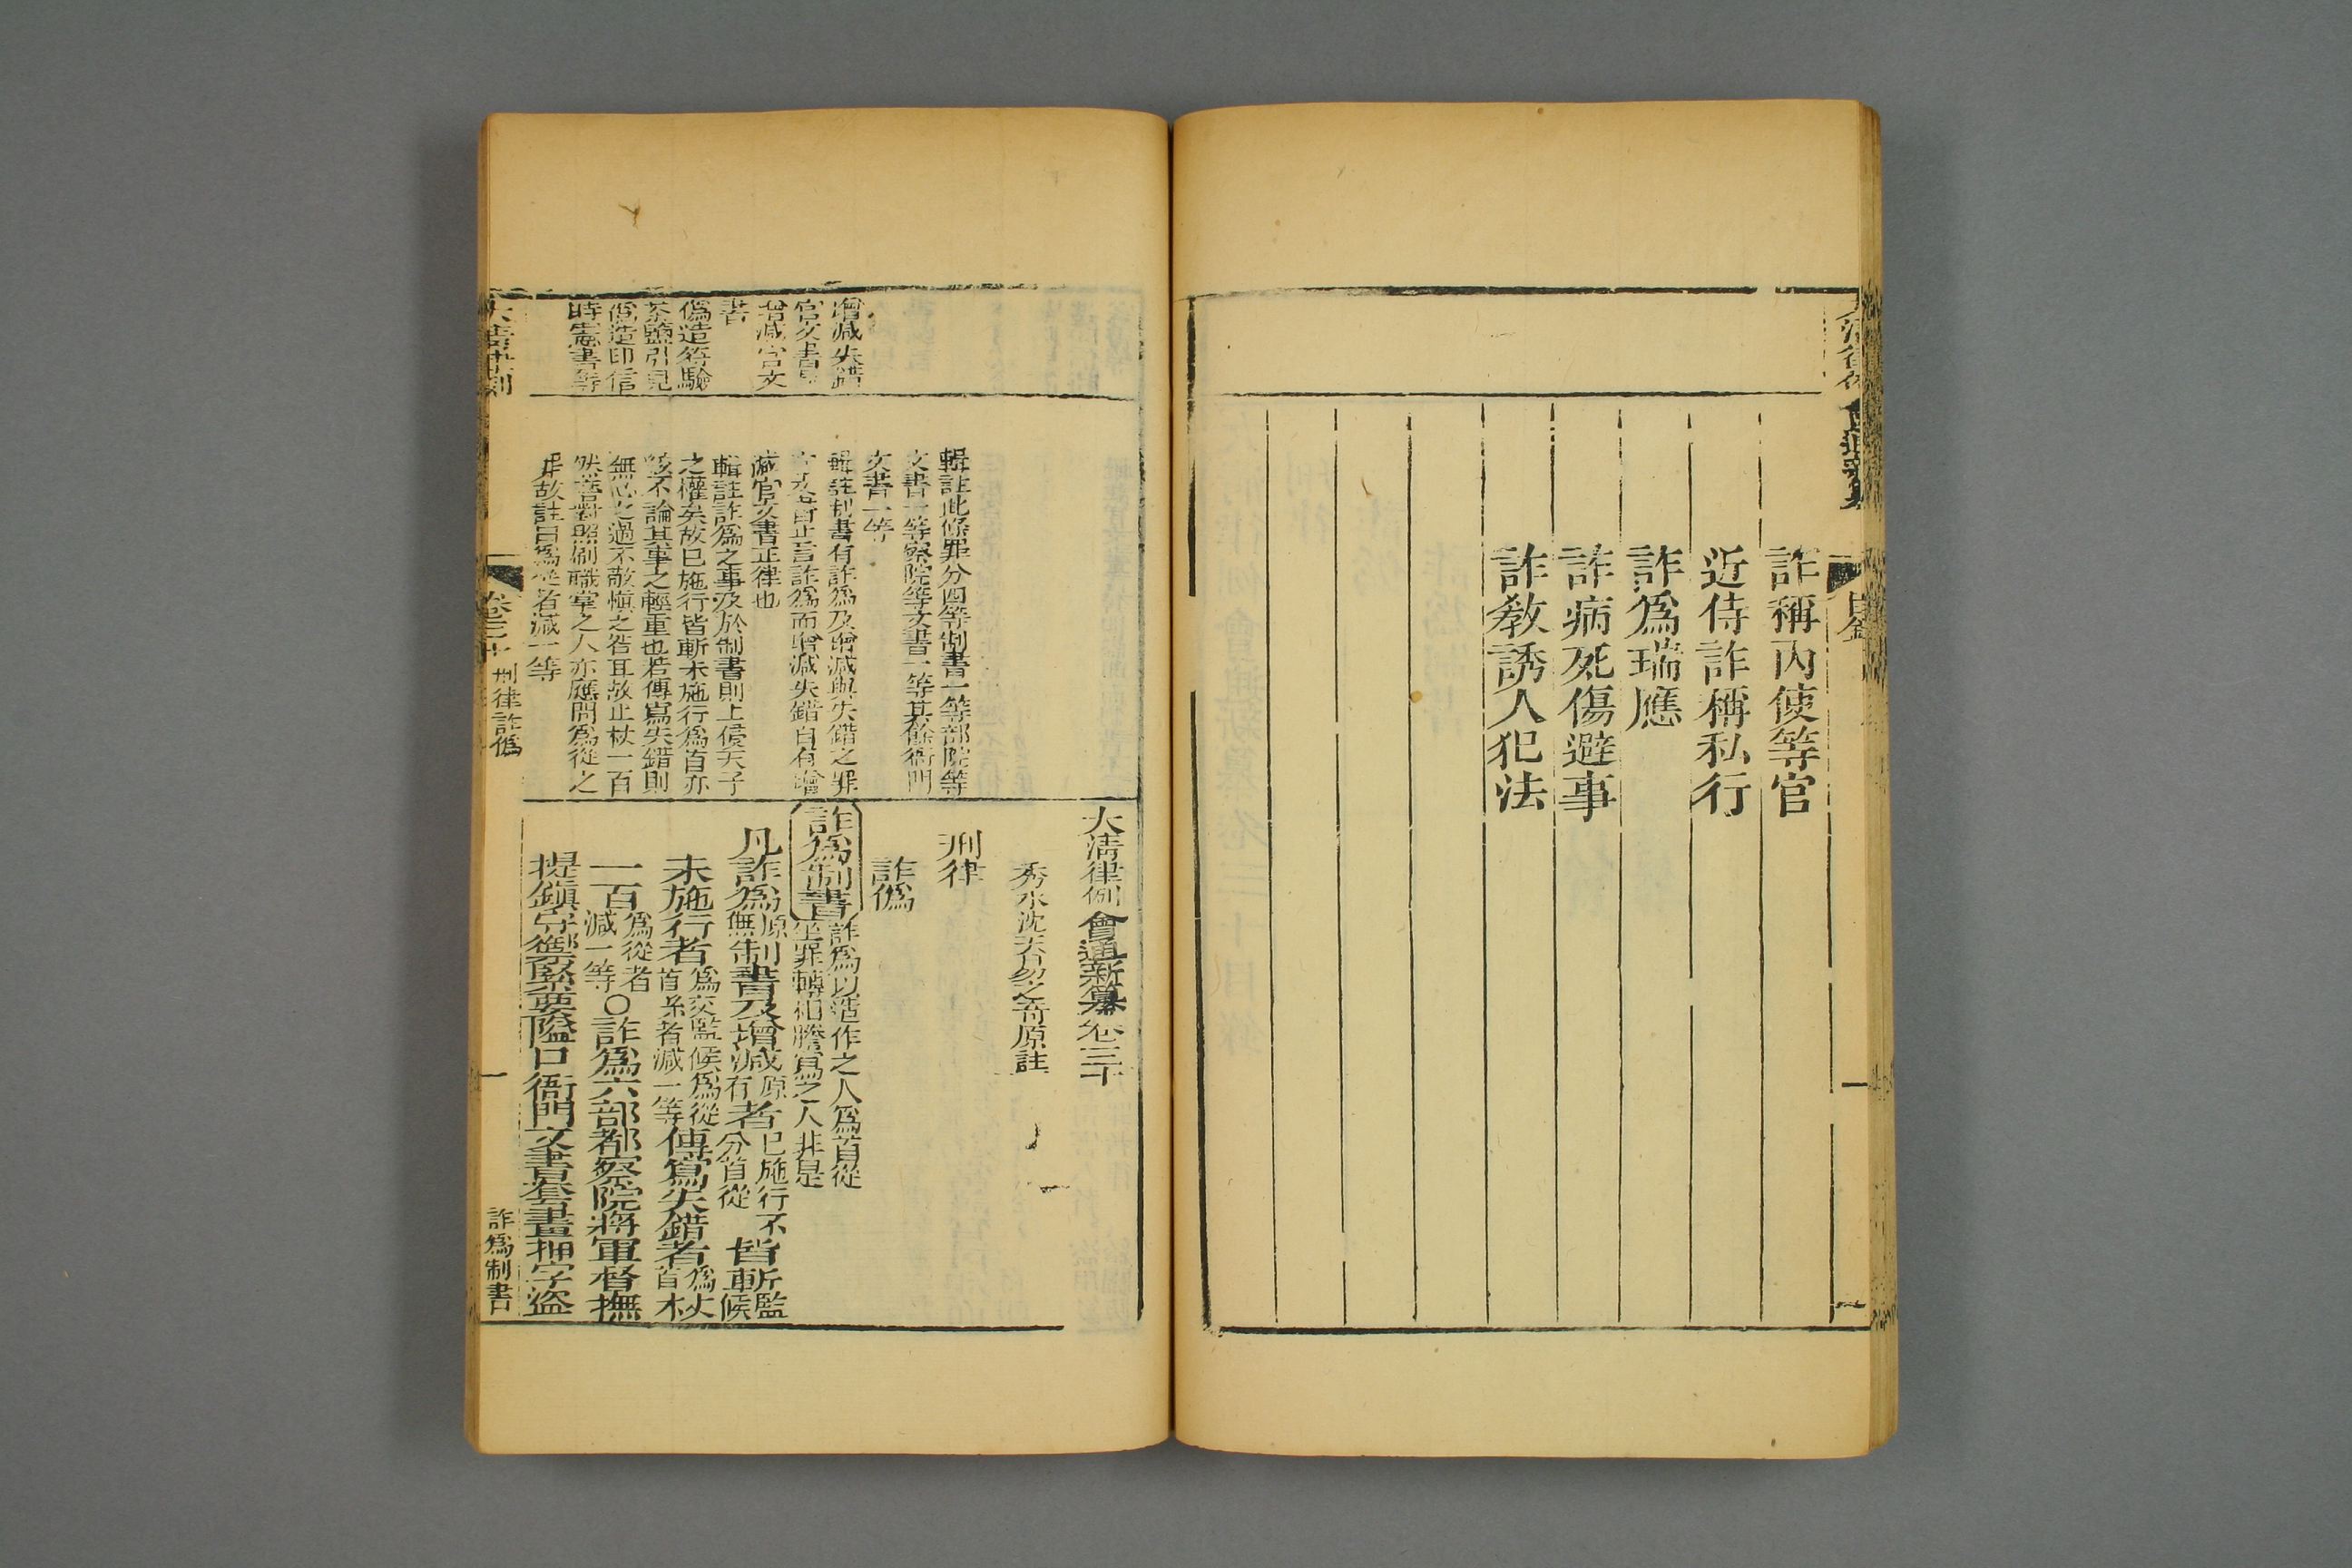 目錄
詐稱內使等官
近侍詐稱私行
詐爲瑞應
詐病死傷避事
詐教誘人犯法
大清律例會通新纂卷三十
秀水沈天易之奇原註
刑律
詐僞
詐爲制書
詐爲以造作之人爲首從
坐罪轉相謄寫之人非是
凡詐爲原無制書及增減原有者已施行不分首從皆斬監候
未施行者爲絞監候爲從首系者減一等傳寫失錯者爲首杖
一百爲從者減一等○詐爲六部都察院將軍督撫
提鎮守禦緊要隘口衙門文書套畫押字盜
輯註此條罪分四等制書一等部院等
文書一等察院等文書一等其餘衙門
文書一等
輯註制書有詐爲及增減與失錯之罪
官文書止言詐爲而增減失錯自有增
減官文書正律也
輯註詐爲之事及於制書則上侵天子
之權矣故已施行皆斬未施行爲首亦
絞不論其事之輕重也若傳寫失錯則
無心之過不敬愼之咎耳故止杖一百
然善對照刷職掌之人亦應問爲從之
罪故註曰爲從者減一等
增減失錯
官文書見
增減官文
書
僞造符驗
茶鹽引見
僞造印信
時憲書等
大清律例
卷三十
刑律詐僞
一
詐爲制書